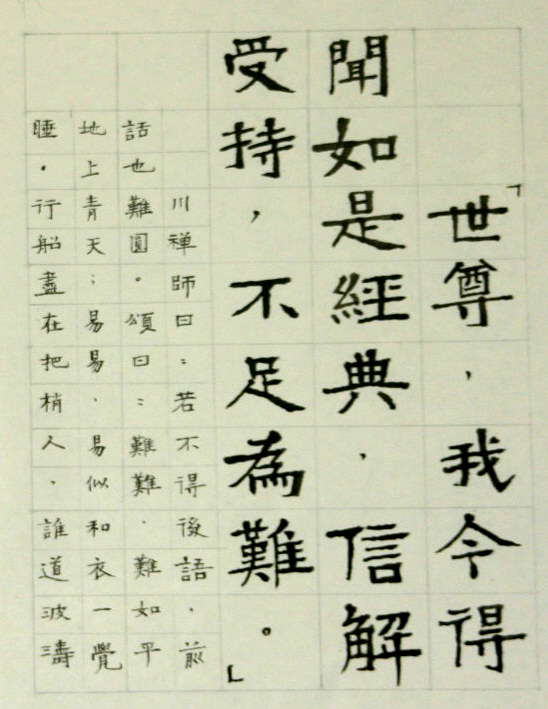 「世尊，我今得
聞如是經典，信解
受持，不足為難。」
川禅師曰：若不得後語，前
話也難圓。頌曰：難難．難如平
地上青天；易易．易似和衣一覺
睡．行船盡在把梢人．誰道波濤